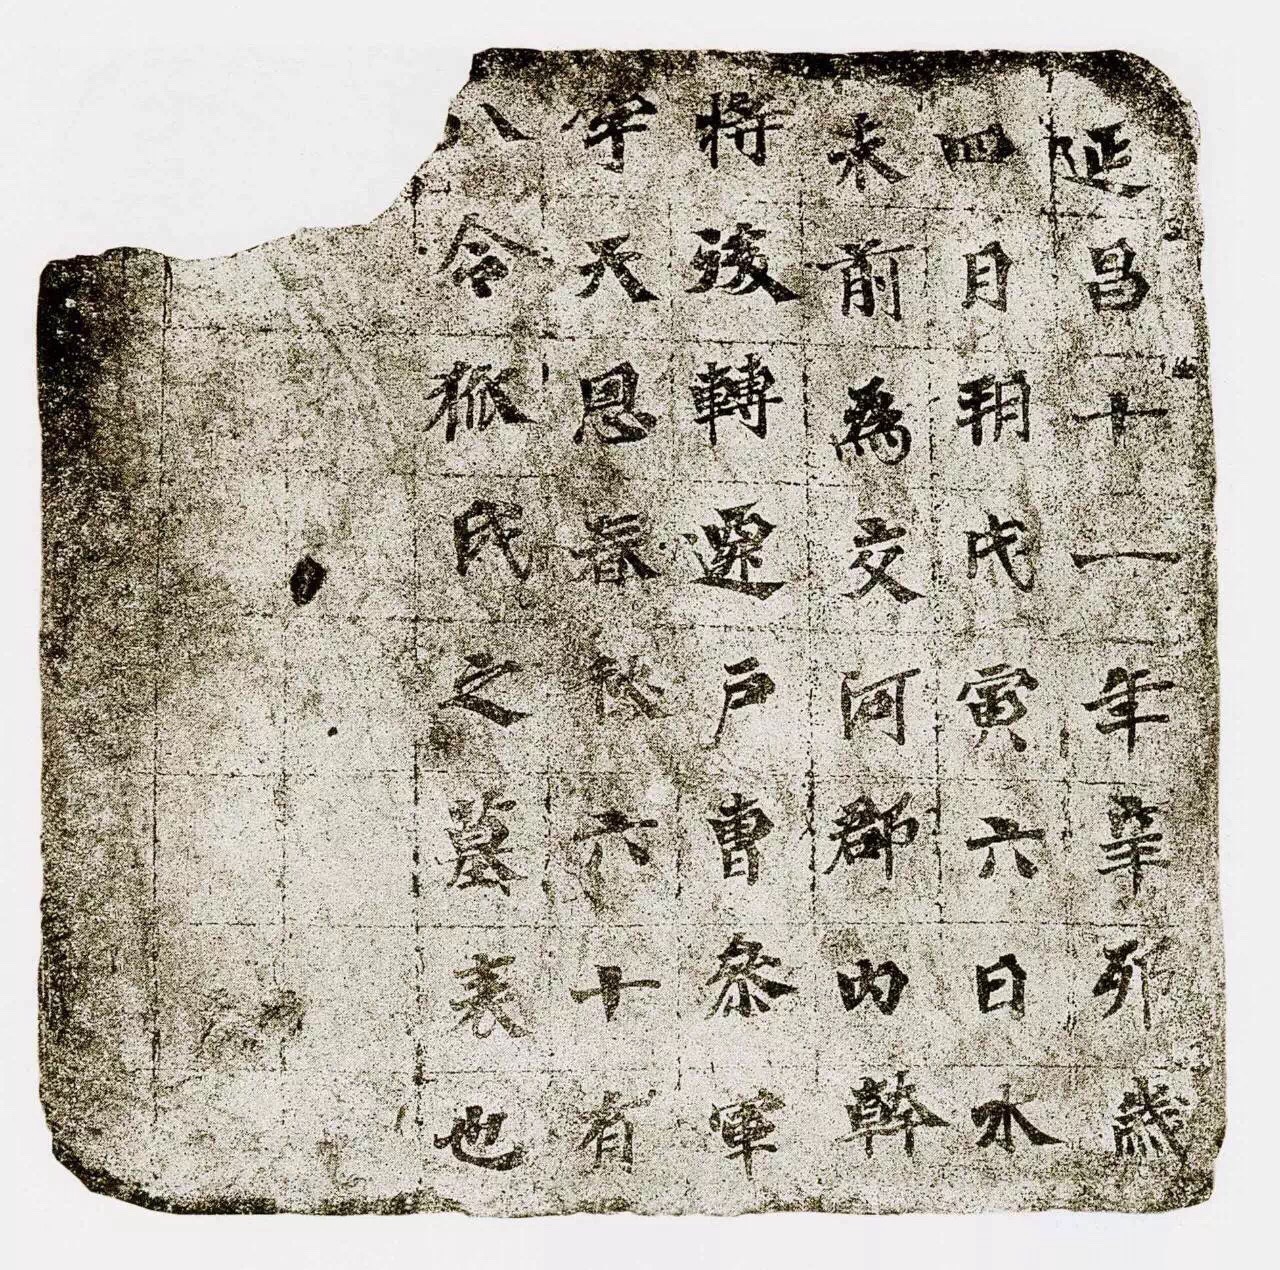 延昌十一年辛卯歲
四月朔戊寅六日水
未前爲交河郡內幹
將後轉遷戶曹參軍
字天恩春秋六十有
八令狐氏之墓表也